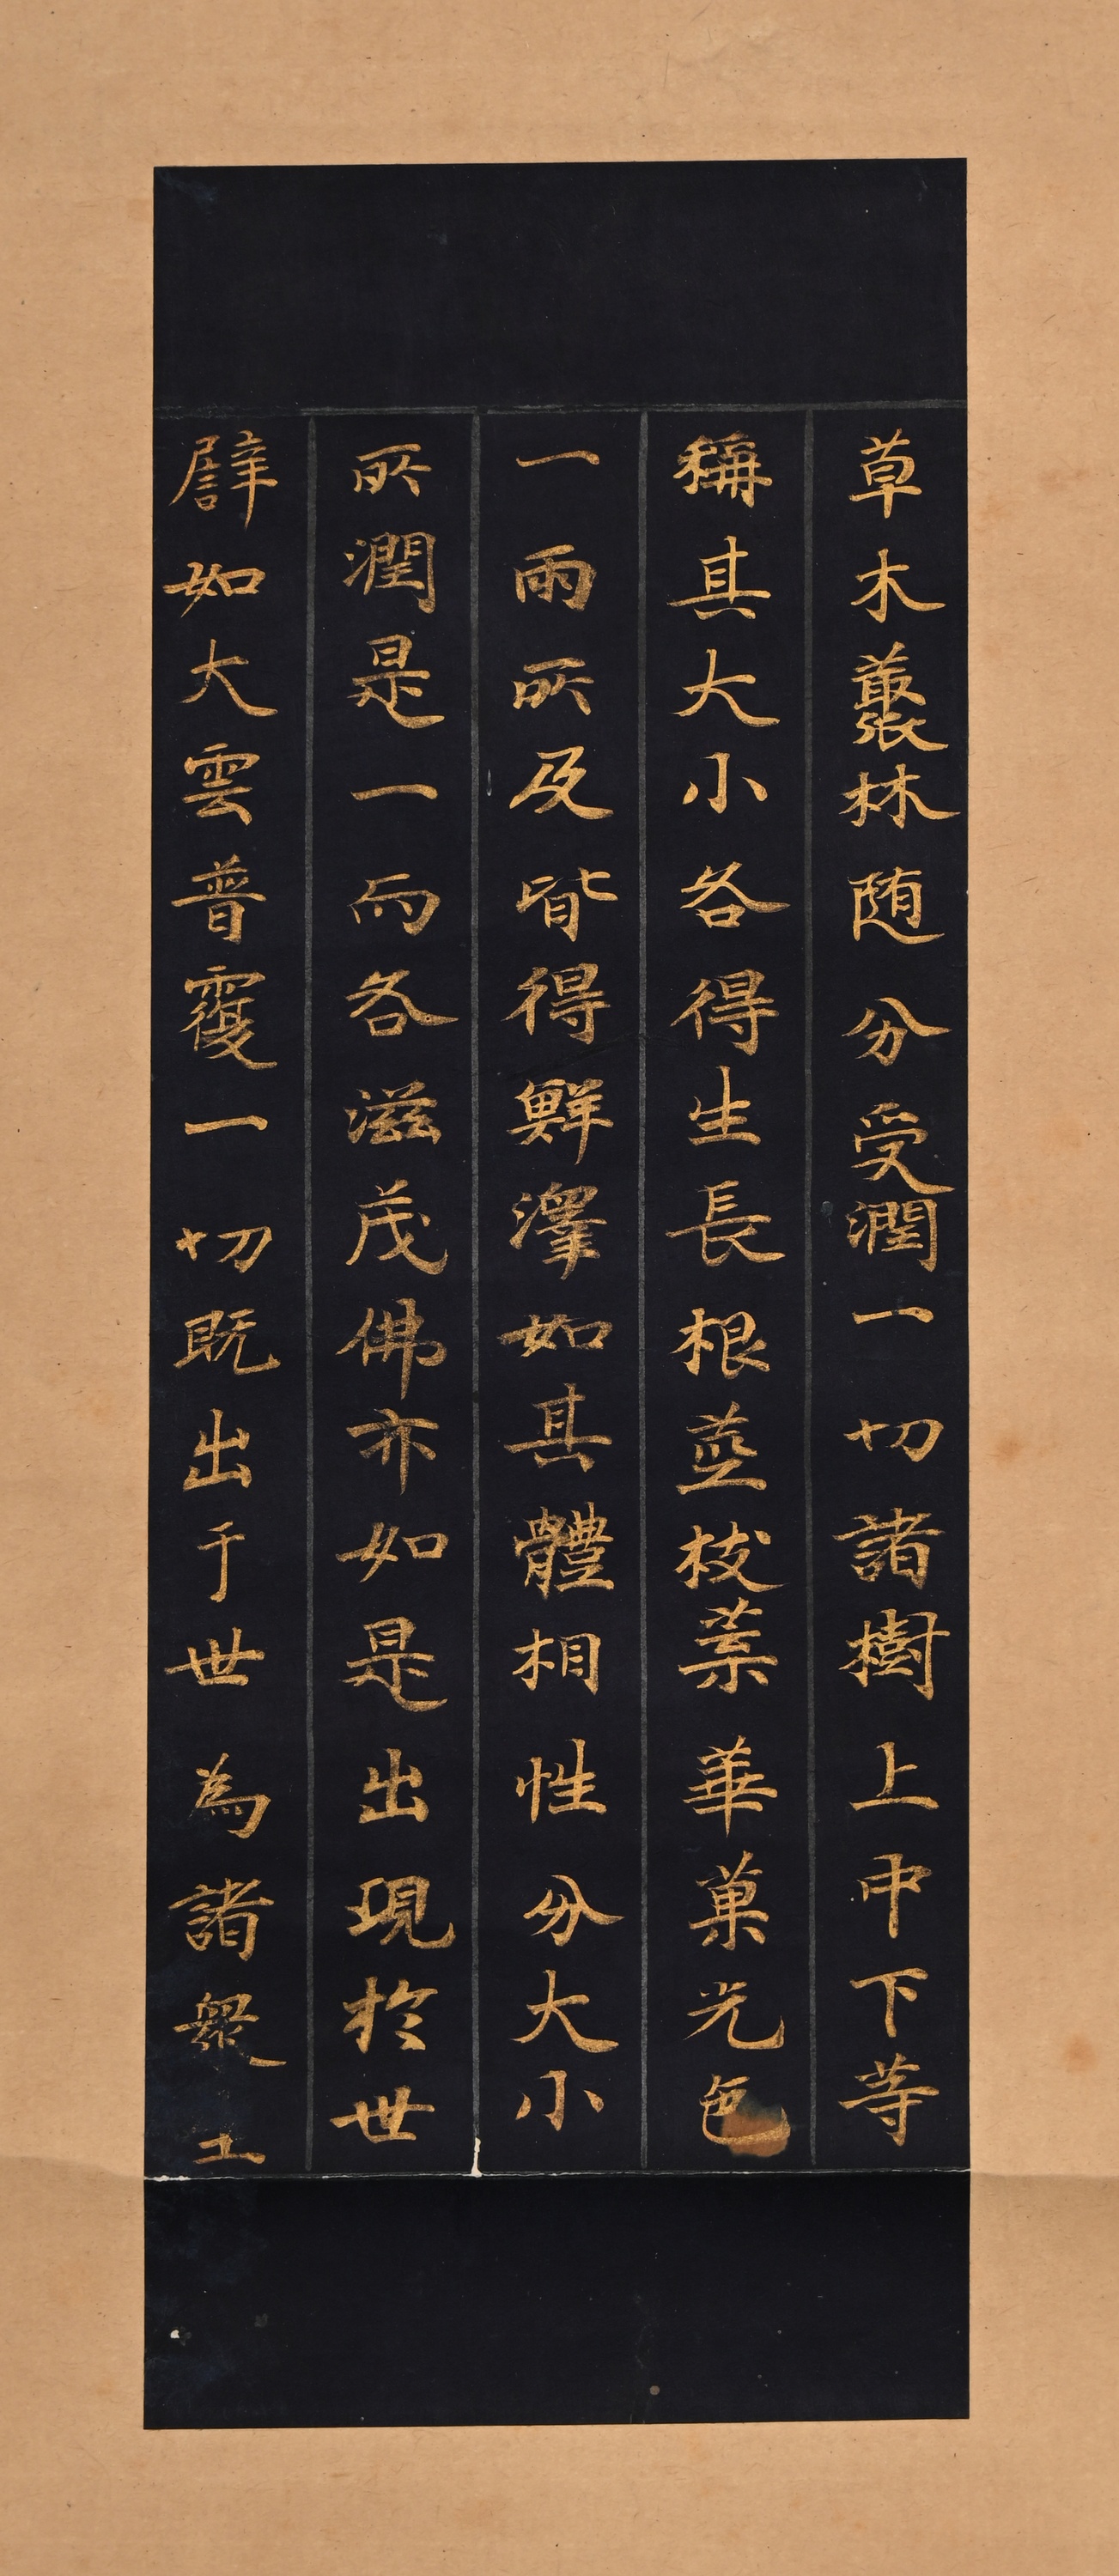 草木藂林随分受潤一切諸樹上中下等
稱其大小各得生長根莖枝葉華菓光色
一雨所及皆得鮮澤如其體相性分大小
所潤是一而各滋茂佛亦如是出現於世
譬如大雲普覆一切既出于世為諸衆